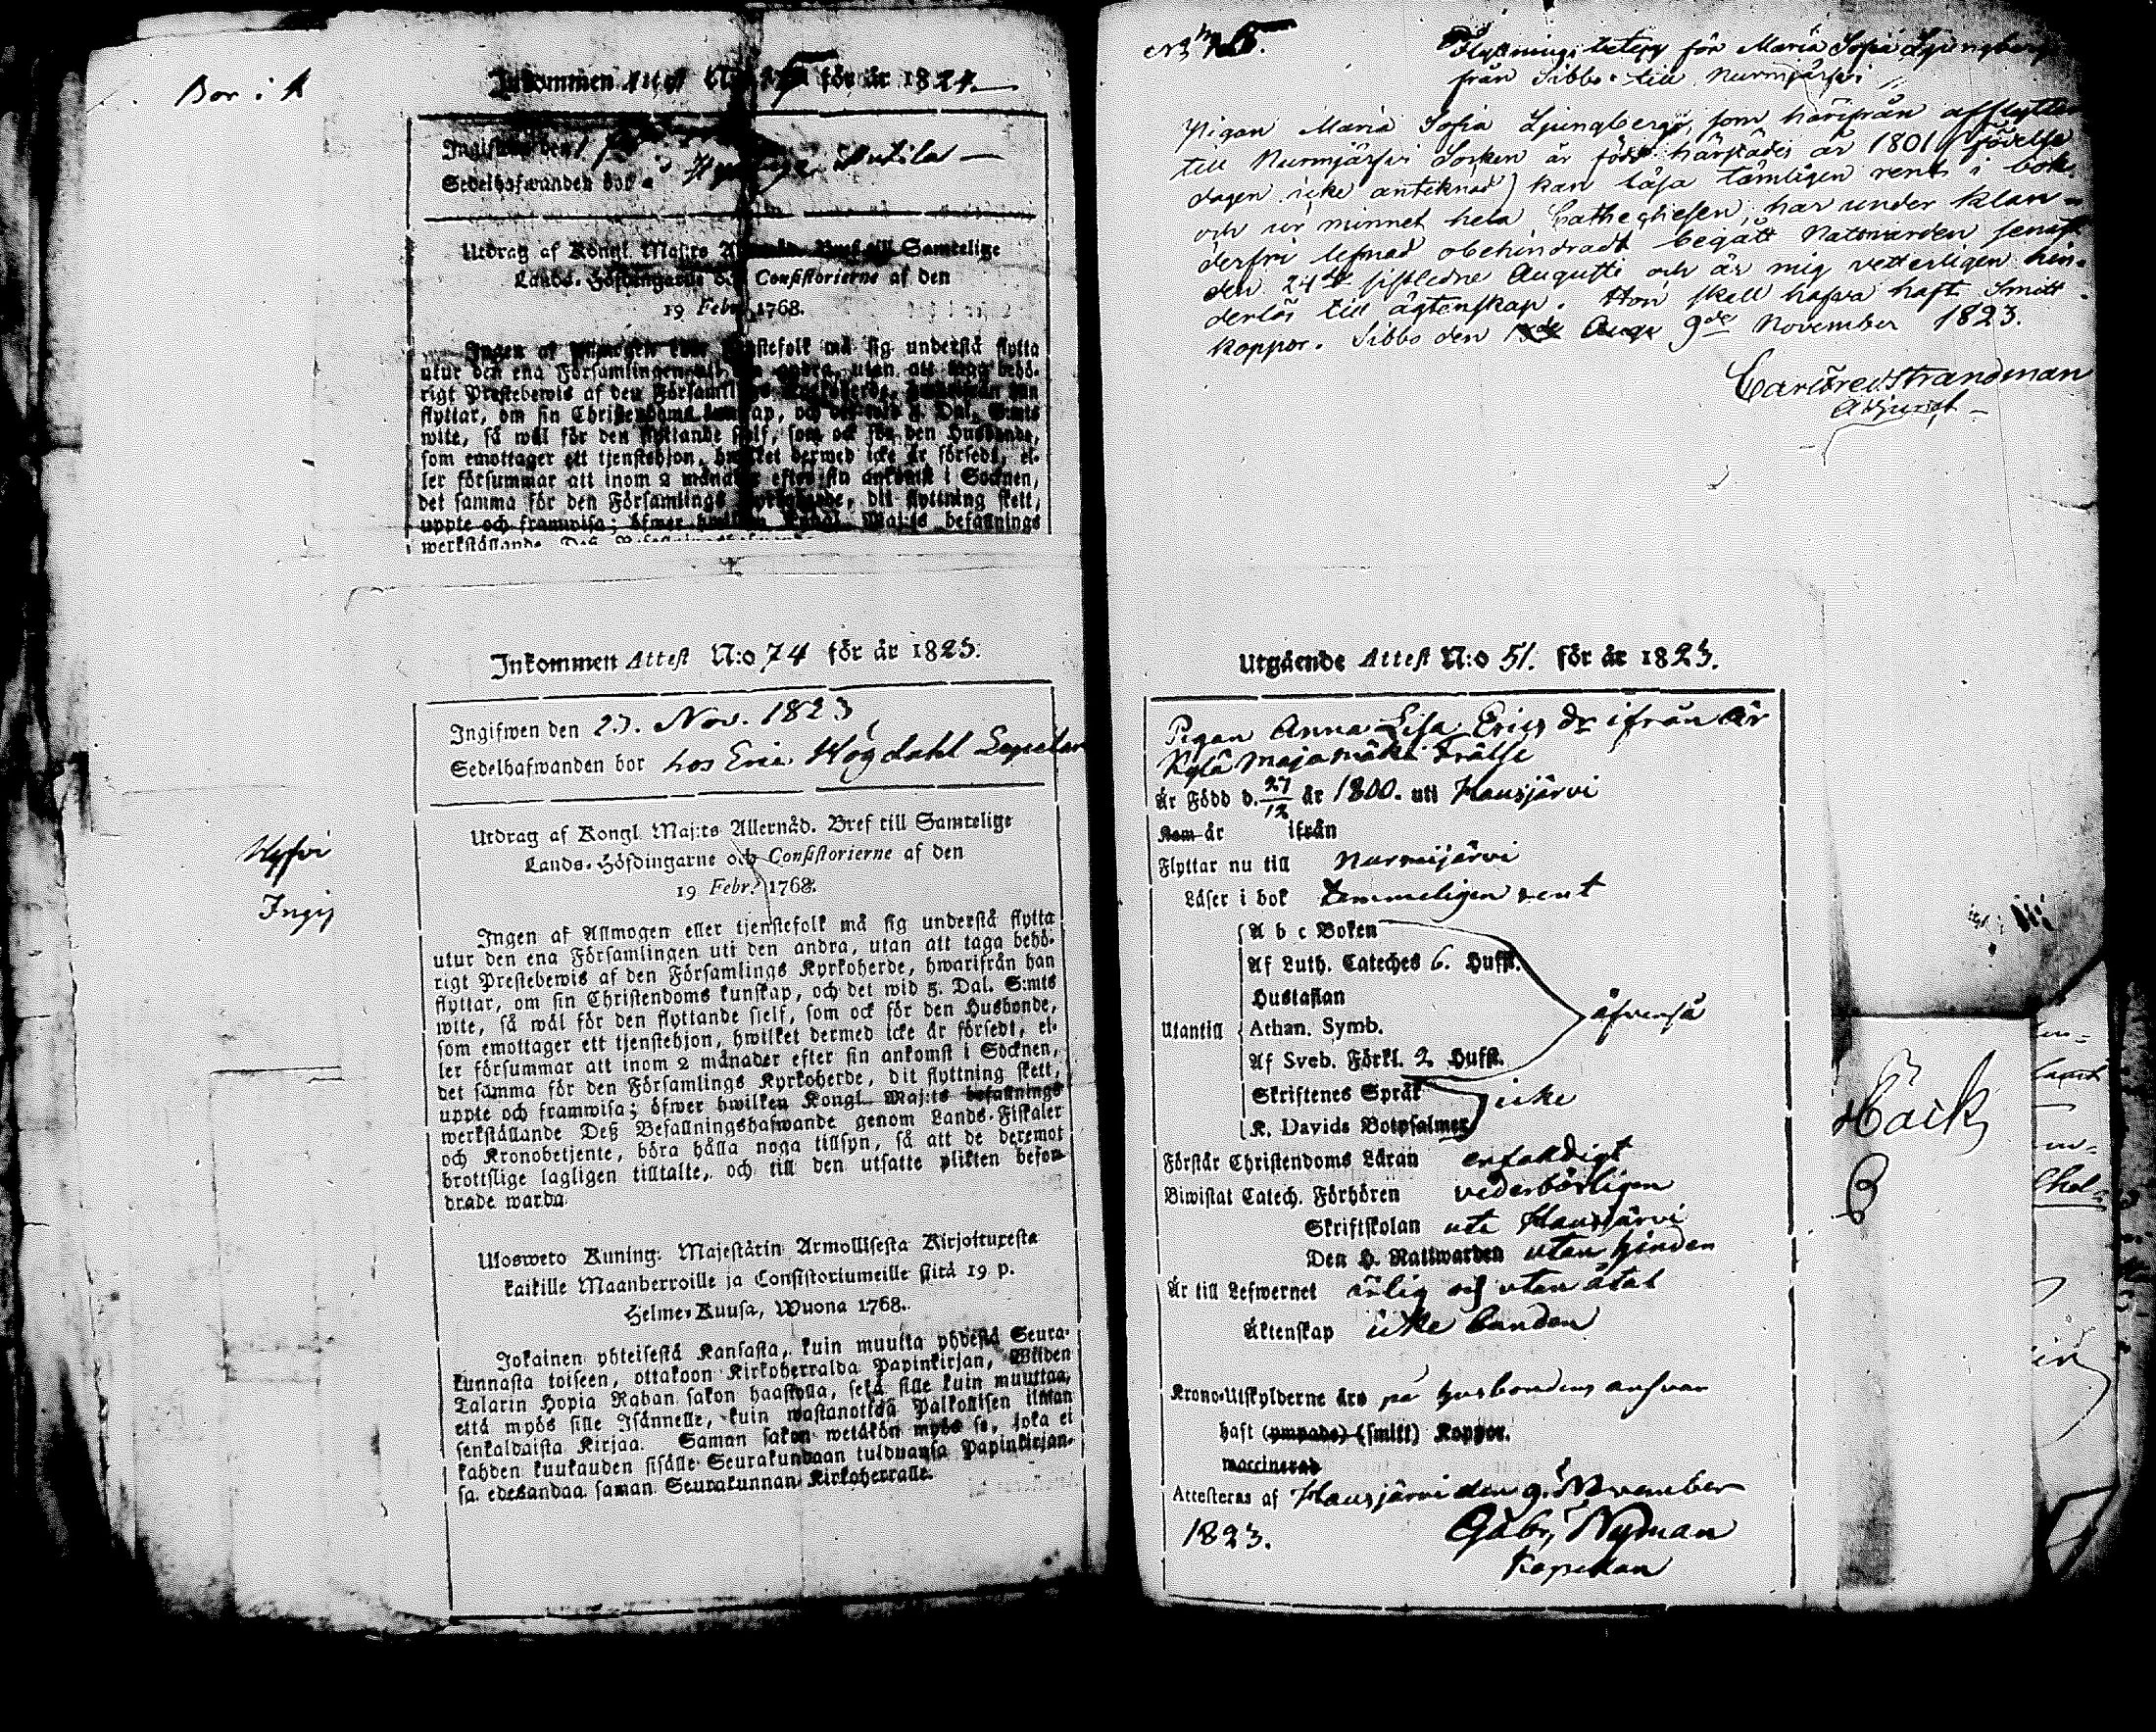 Bor i
Inkommen Attest N:o 75 för år 1824.
Ingifwen den
Sedelhafwanden bor
Utdrag af Kongl. Maj:ts Bref till Samtelige
Lands-Höfdingarne och Consistorierne af den
19 Febr. 1768.
Ingen af tjenstefolk må sig understå flytta
utur den ena Församlingen uti den andra, utan att taga behö-
rigt Prestebewis af den Församlings Kyrkoherde, hwarifrån han
flyttar, om sin Christendoms kunskap, och det wid 5. Dal. S:mts
wite, så wäl för den flyttande sjelf, som ock för den Husbonde,
som emottager ett tjenstehjon, hwilket dermed icke är försedt, el-
ler försummar att inom 2 månader efter sin ankomst i Socknen,
det samma för den Församlings Kyrkoherde, dit flyttning skett,
uppte och framwisa; öfwer hwilken Kongl. Maj:ts befallnings
werkställande Deß
Inkommen Attest N:o 74 för år 1823.
Ingifwen den 23. Nov. 1823
Sedelhafwanden bor hos Eric Högdahl
Hyfvi
Ingif
Utdrag af Kongl. Maj:ts Allernåd. Bref till Samtelige
Lands-Höfdingarne och Consistorierne af den
19 Febr. 1768.
Ingen af Allmogen eller tjenstefolk må sig understå flytta
utur den ena Församlingen uti den andra, utan att taga behö-
rigt Prestebewis af den Församlings Kyrkoherde, hwarifrån han
flyttar, om sin Christendoms kunskap, och det wid 5. Dal. S:mts
wite, så wäl för den flyttande sjelf, som ock för den Husbonde,
som emottager ett tjenstehjon, hwilket dermed icke är försedt, el-
ler försummar att inom 2 månader efter sin ankomst i Socknen,
det samma för den Församlings Kyrkoherde, dit flyttning skett,
uppte och framwisa; öfwer hwilken Kongl. Maj:ts befallnings
werkställande Deß Befallningshafwande genom Lands-Fiskaler
och Kronobetjente, böra hålla noga tillsyn, så att de deremot
brottslige lagligen tilltalte, och till den utsatte plikten befor-
drade warda.
Ulosweto Kuning: Majestätin Armollisesta Kirjoituxesta
kaikille Maanherroille ja Consistoriumeille siitä 19 p.
Helme-Kuusa, Wuona 1768.
Jokainen yhteisestä Kansasta, kuin muutta yhdestä Seura-
kunnasta toiseen, ottakoon Kirkoherralda Papinkirjan, Wiiden
Talarin Hopia Rahan sakon haastolla, sekä sille kuin muuttaa,
että myös sille Isännelle, kuin wastanottaa Palkollisen ilman
senkaldaista Kirjaa. Saman sakon wetäkön myös se, joka ei
kahden kuukauden sisälle Seurakundaan tulduansa Papinkirjan-
sa edesandaa saman Seurakunnan Kirkoherralle.
Flyttnings betyg för Maria Sofia Ljungberg
från Sibbo till Nurmijärvi
Pigan Maria Sofia Ljungberg, som härifrån afflyttar
till Nurmijärvi Socken är född härstädes år 1801 (födelse
dagen icke antecknad) kan läsa tämligen rent i bok
och ur minnet hela Cathechesen, har under klan-
derfri lefnad obehindradt begått Nattvarden senast
den 24de sistledne Augusti och är mig vetterligen hin-
derlös till ägtenskap. Hon skall hafva haft Smitt
koppor. Sibbo den 9de November 1823.
Carl Fred. Strandman
Adjunct
Utgående Attest N:o 51. för år 1823.
Pigan Anna Lisa Erics dr ifrån
Kylä Majamäki Frälse
Är Född d. 27/12 år 1800. uti Hausjärvi
Kom år ifrån
Flyttar nu till Nurmijärvi
Läser i bok temmeligen rent
A b c Boken
Af Luth. Cateches 6. Hufst.
Hustaflan
Utantill Athan. Symb. äfvenså
Af Sveb. Förkl. 2 Hufst.
Skriftenes Språk icke
K. Davids Botpsalmer
Förstår Christendoms Läran enfaldigt
Biwistat Catech. Förhören vederbörligen
Skriftskolan uti Hausjärvi
Den H. Nattwarden utan hinder
Är till Lefwernet ärlig och utan åtal
Äktenskap icke bunden
Krono-Utskylderne äro på husbondens ansvar
haft (ympade) (smitt) Koppor.
waccinerad
Attesteras af Hausjärvi den 9. November
1823. Gabr. Nyman
Kapellan